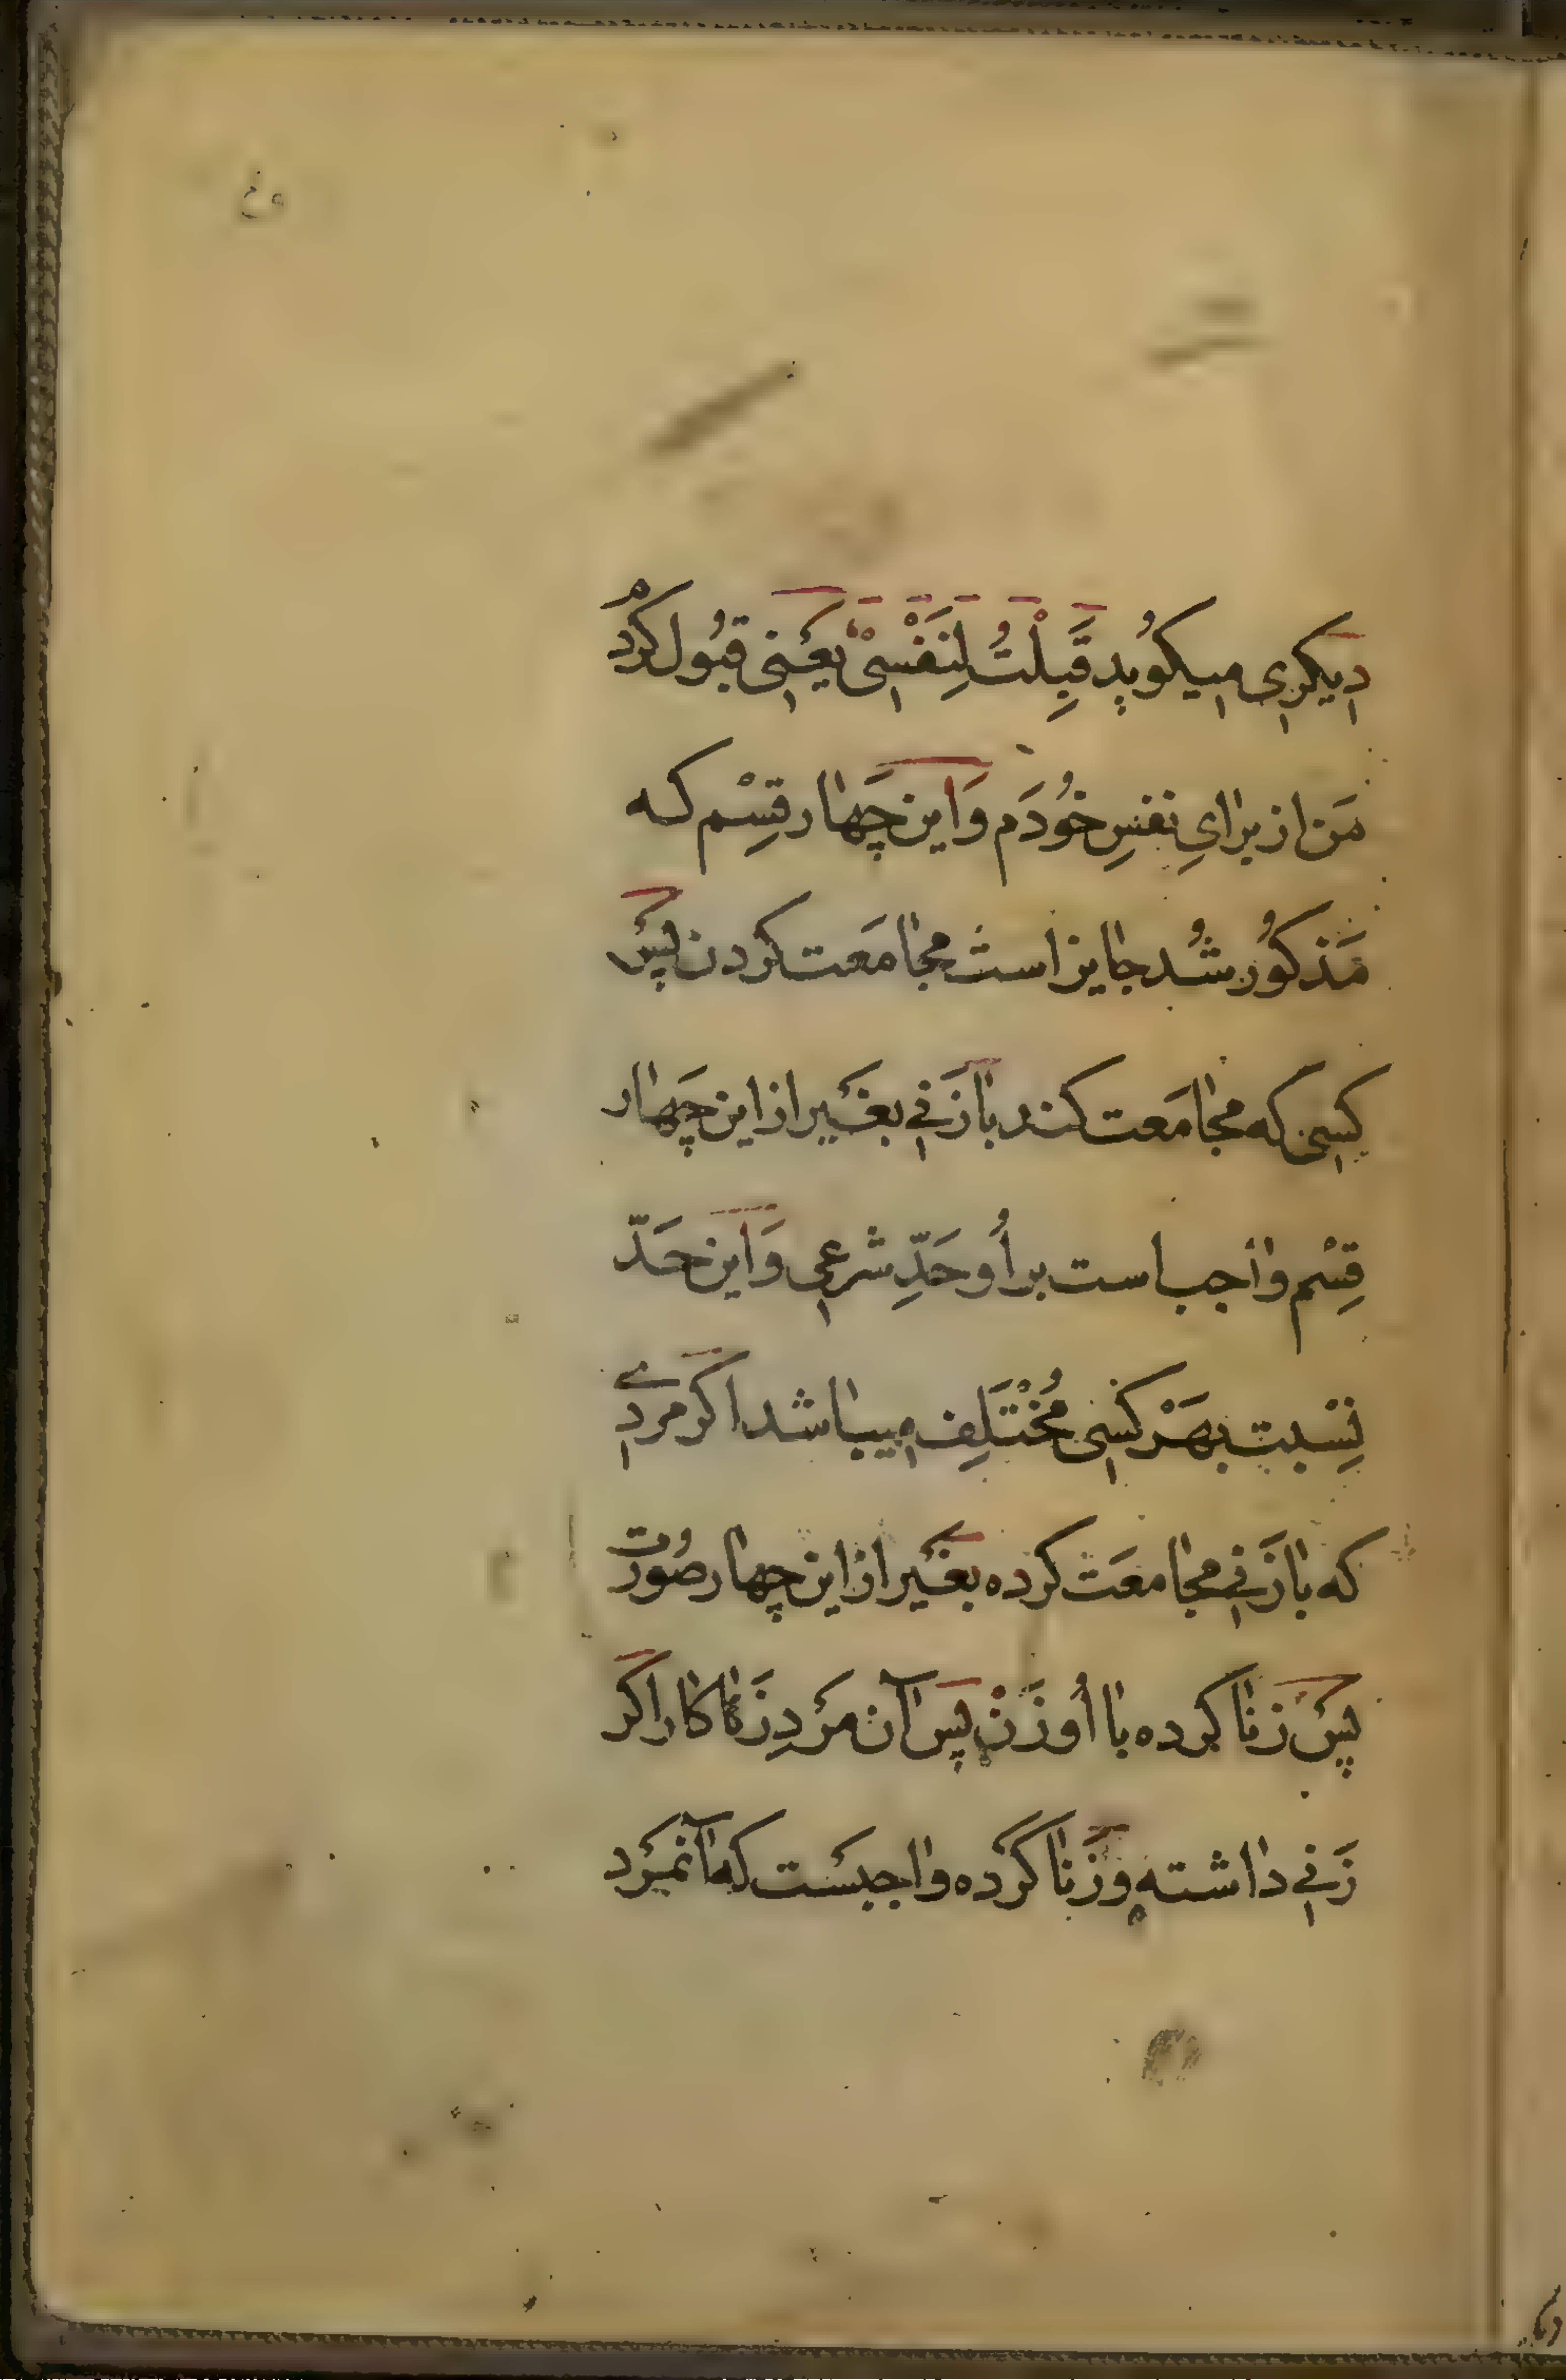 دیکری میکوُید قَبِلْتُ لِنَفْسیْ یعنی قبُول کردم
مَن از برایِ نفسِ خوُدَم وَاین چَهار قسِْم که
مَذکوُر شُد جایز است مجامَعت کردن پس
کسی که مجامَعت کند با زَنی بغَیر از این چَهار
قِسْم واجب است بر اُو حَدِّ شرعی وَاین حَدّ
نِسْبت بهَرْ کَسی مُخْتَلِف میباشد اکر مردی
که با زَنی مجامعَت کرده بغَیر از این چهار صُورت
پس زنا کرده با اُو زَنْ پس آن مَردِ زَناکار اکر
زَنی داشته وزَنا کَرده واجبست که آنمَرد